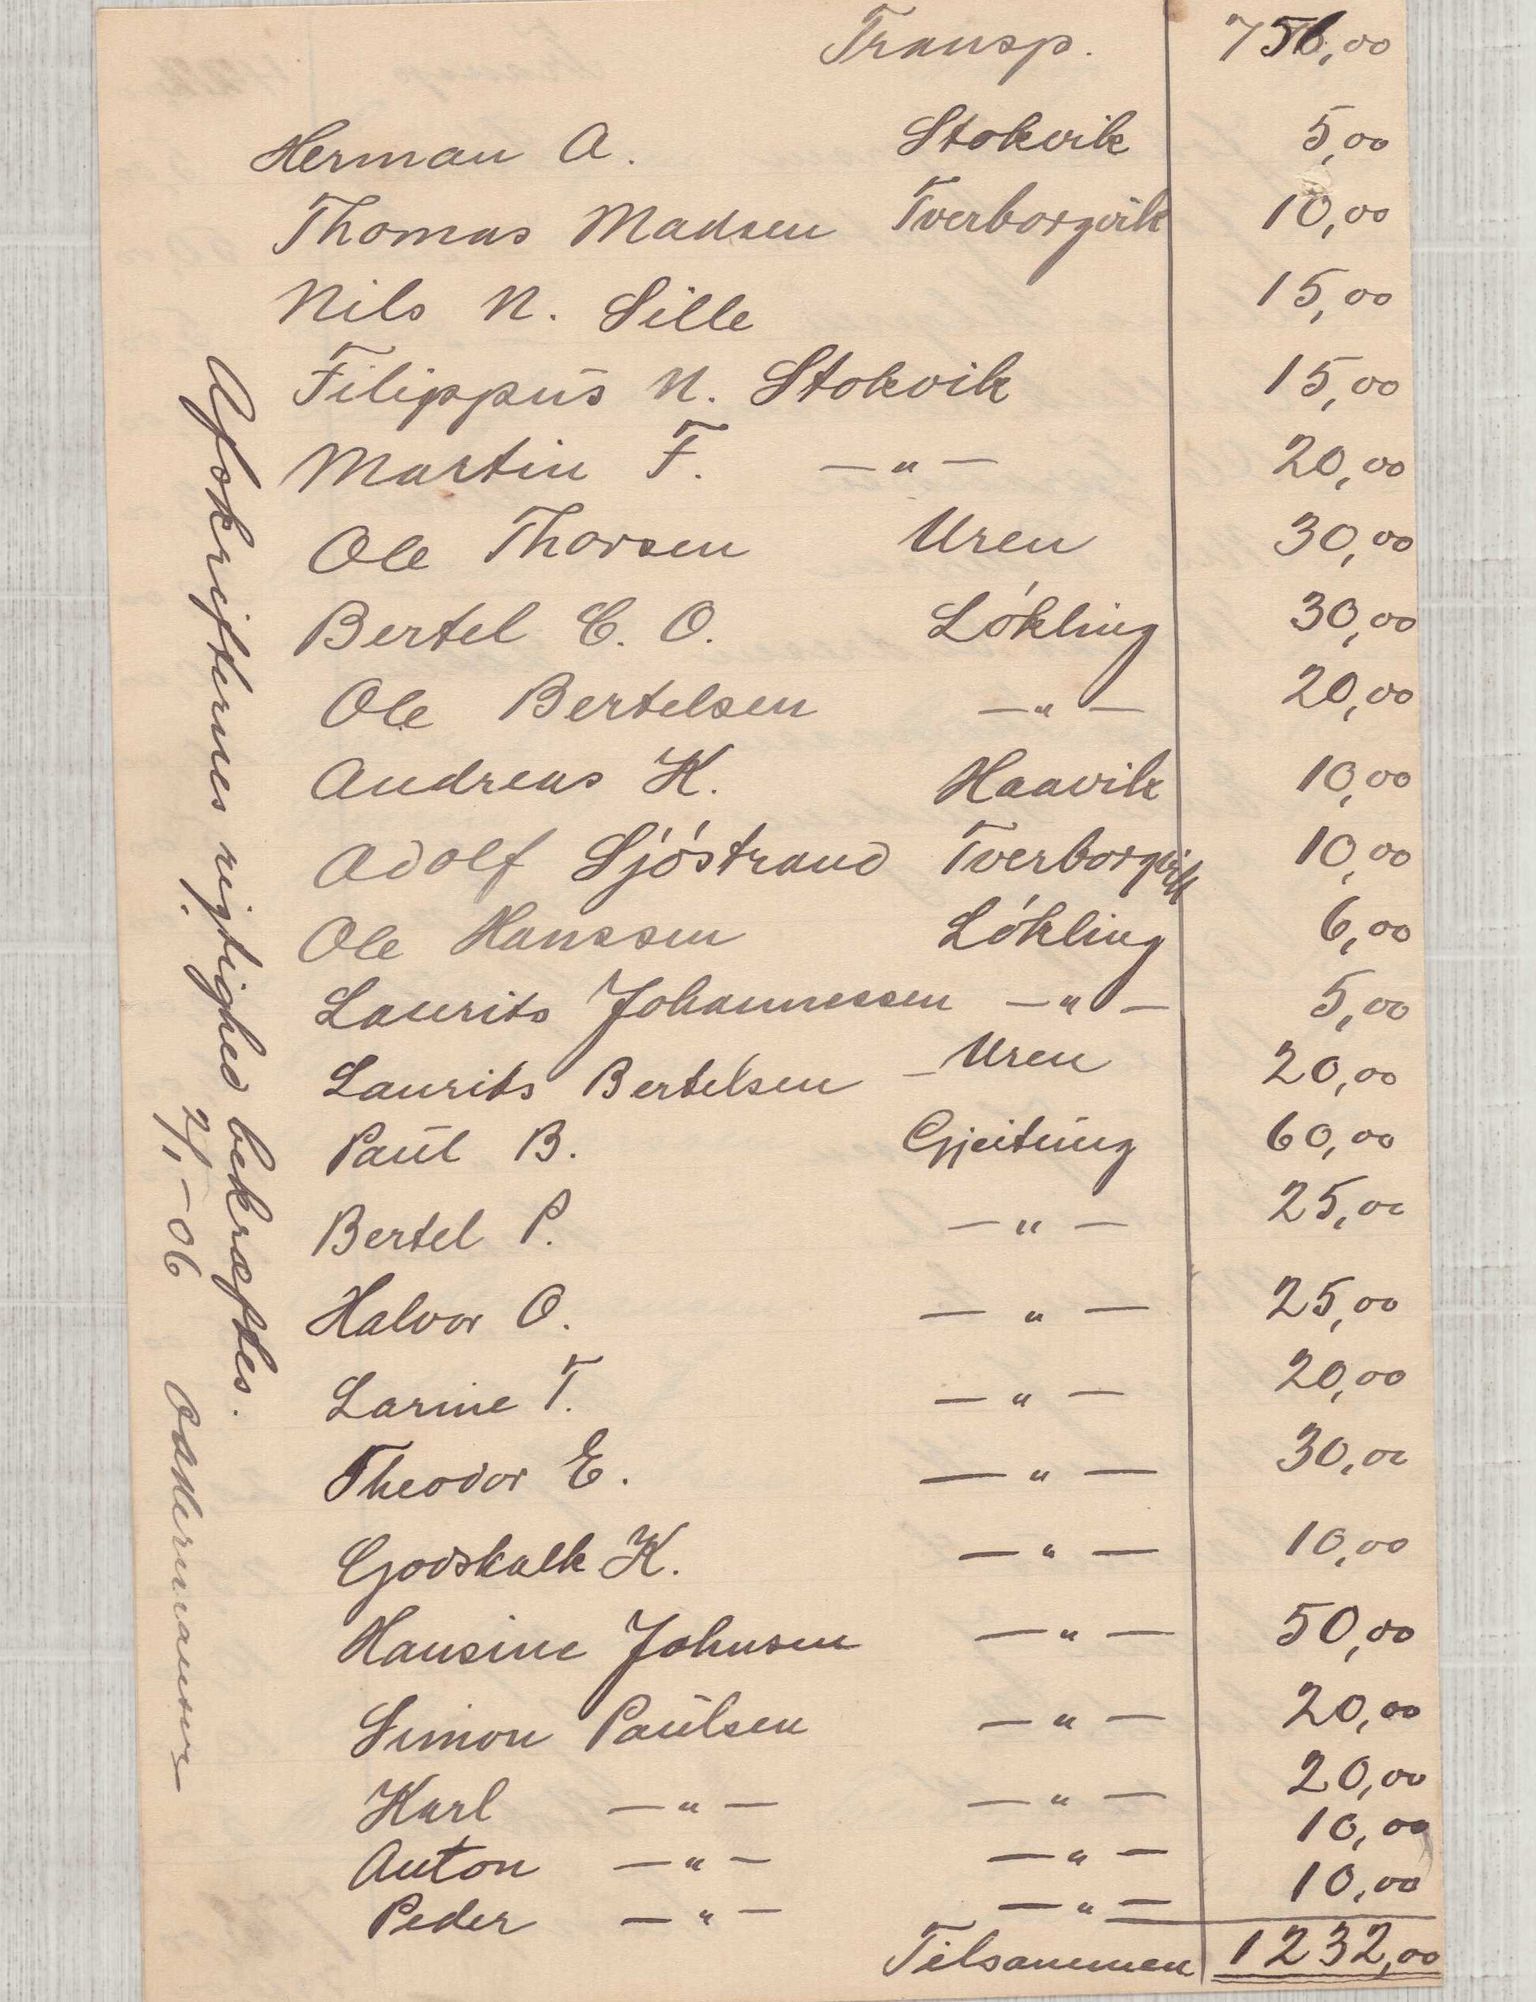 Transp. 756,00
Herman A. Stokvik 5,00
Thomas Madsen Tverborgvik 10,00
Nils N. Sille 15,00
Filippus N. Stokvik 15,00
Martin F. —"— 20,00
Ole Thorsen Uren 30,00
Bertel C. O. Lókling 30,00
Ole Bertelsen —"— 20,00
Andreas K. Haavik 10,00
Adolf Sjóstrand Tverborgvik 10,00
Ole Hanssen Lókling 6,00
Laurits Johannessen —"— 5,00
Laurits Bertelsen – Uren 20,00
Paul B. Gjeitung 60,00
Bertel P. —"— 25,00
Halvor O. —"— 25,00
Larine T. —"— 20,00
Theodor E. —"— 30,00
Godskalk K. —"— 10,00
Hansine Johnsen —"— 50,00
Simon Paulsen —"— 20,00
Karl —"— —"— 20,00
Anton —"— —"— 10,00
Peder —"— —"— 10,00
Tilsammen 1232,00
Afskrifternes rigtighed bekræftes.
2/1–06